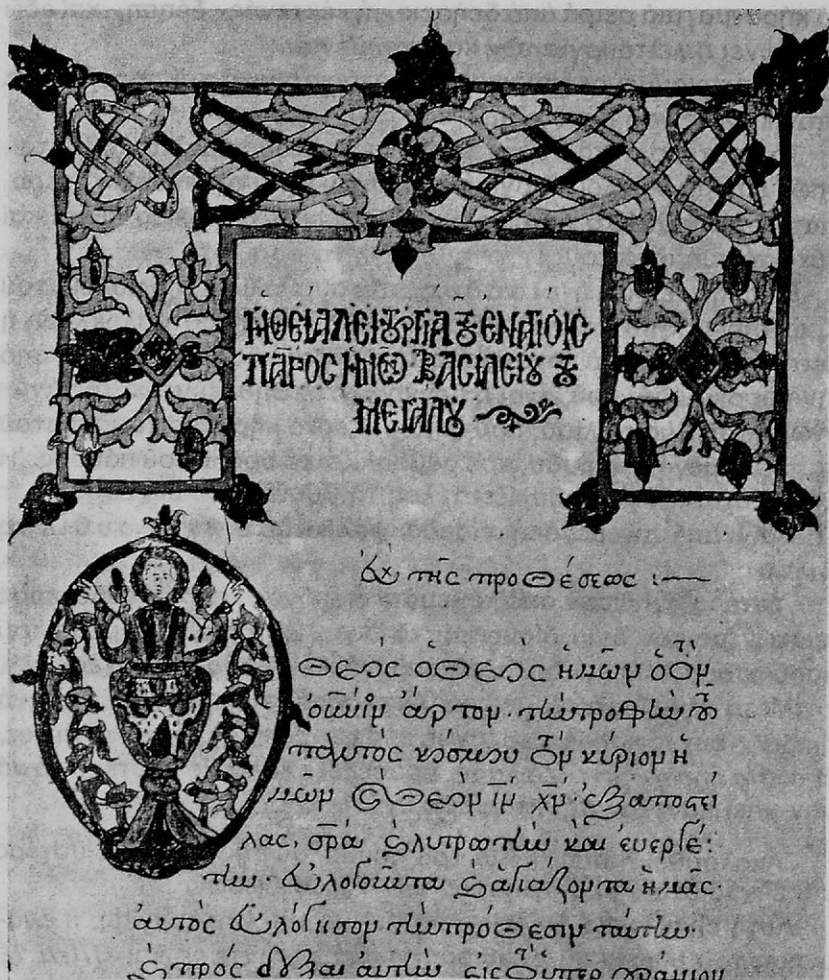 Ἡ ΘΕΙΑ ΛΕΙΤȢΡΓΙΑ ΤȢ ΕΝ ΑΓΙΟΙΣ
ΠΑΤΡΟΣ ΗΜΩΝ ΒΑΣΙΛΕΙȢ ΤȢ
ΜΕΓΑΛȢ
Εὐχὴ τῆς προθέσεως :—
Θεὸς ὁ Θεὸς ἡμῶν ὁ τὸν
οὐνιον ἄρτον· τὴν τροφὴν τοῦ
παντὸς κόσμου τὸν κύριον ἡ
μῶν καὶ Θεὸν ι̅ν̅ χ̅ν̅· ἐξαποστεί
λας, σ̅ρ̅α̅ καὶ λυτρωτὴν καὶ εὐεργέ
την· εὐλογοῦντα καὶ ἁγιάζοντα ἡμᾶς·
αὐτὸς εὐλόγησον τὴν πρόθεσιν ταύτην·
καὶ πρόσδεξαι αὐτὴν εἰς τὸ ὑπερουράνιον